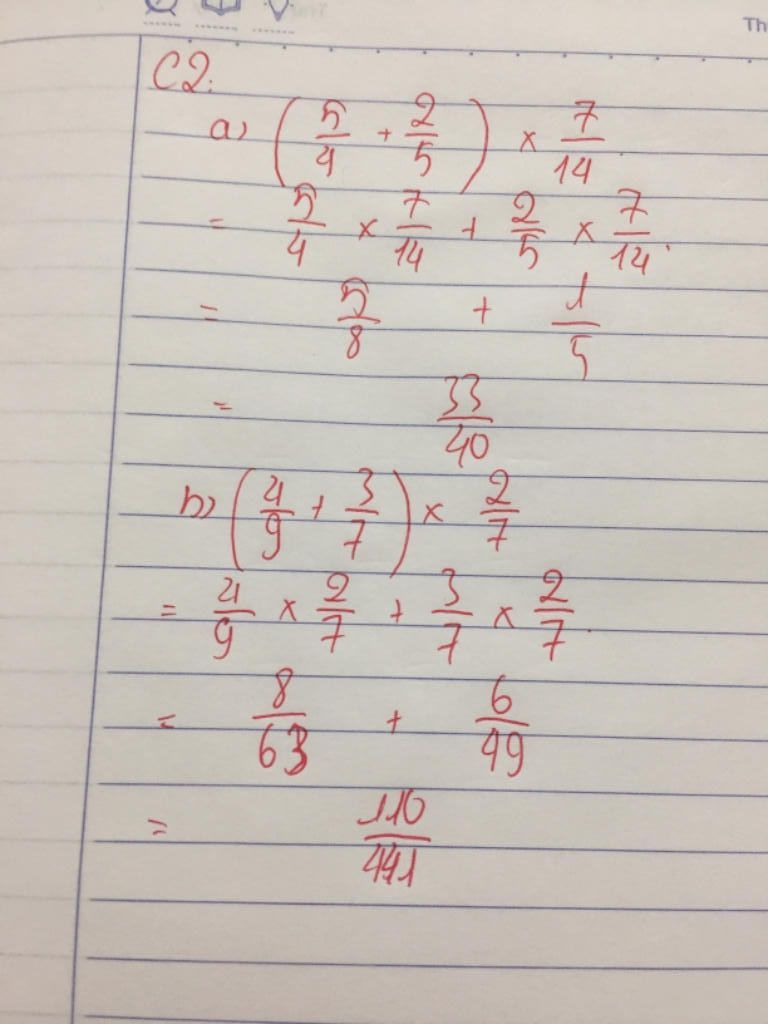 Th
C2:
a) (5/4 + 2/5) × 7/14.
= 5/4 × 7/14 + 2/5 × 7/14.
= 5/8 + 1/5
= 33/40
b) (4/9 + 3/7) × 2/7
= 4/9 × 2/7 + 3/7 × 2/7.
= 8/63 + 6/49
= 110/441